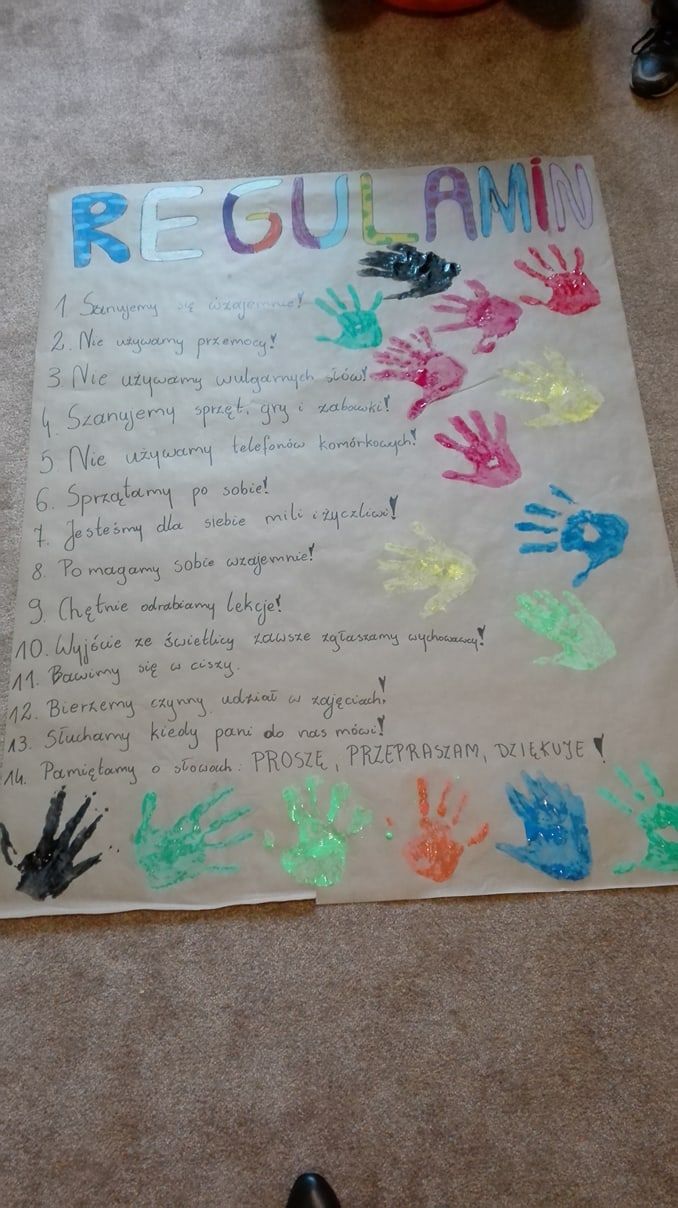 REGULAMIN
1. Szanujemy się wzajemnie!
2. Nie używamy przemocy!
3. Nie używamy wulgarnych słów!
4. Szanujemy sprzęt, gry i zabawki!
5. Nie używamy telefonów komórkowych!
6. Sprzątamy po sobie!
7. Jesteśmy dla siebie mili i życzliwi!
8. Pomagamy sobie wzajemnie!
9. Chętnie odrabiamy lekcje!
10. Wyjście ze świetlicy zawsze zgłaszamy wychowawcy!
11. Bawimy się w ciszy.
12. Bierzemy czynny udział w zajęciach!
13. Słuchamy kiedy pani do nas mówi!
14. Pamiętamy o słowach: PROSZĘ, PRZEPRASZAM, DZIĘKUJE!